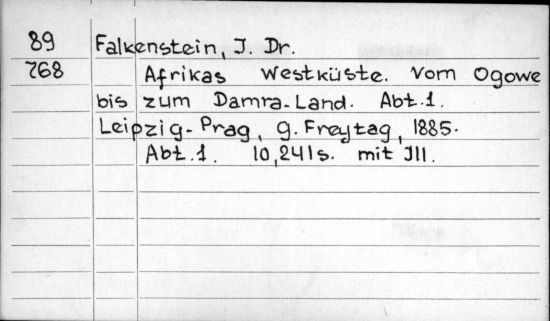 89 Falkenstein, J. Dr.
768 Afrikas Westküste. Vom Ogowe
bis zum Damra-Land. Abt.1.
Leipzig-Prag, G. Freytag, 1885.
Abt.1. 10,241s. mit Ill.